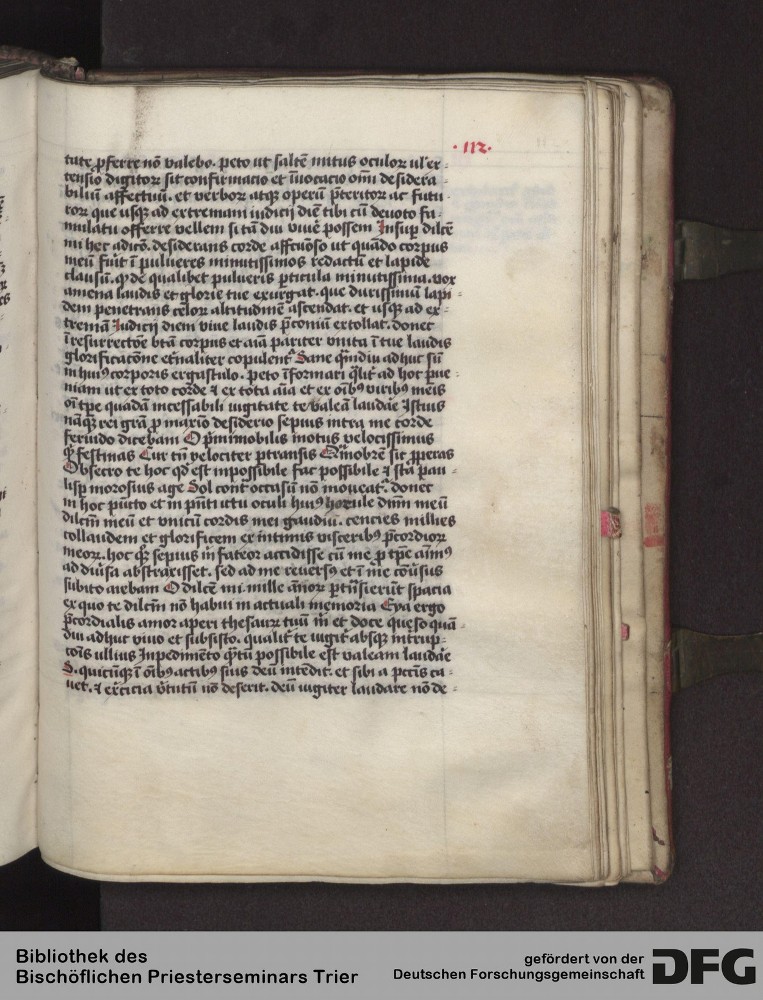 ·112·
tute ꝓferre nō valebo. peto ut saltē nutus oculoꝝ ul' ex-
tensio digitoꝝ sit confirmacio et īuocacio om̄i desidera-
biliū affectuū. et verboꝝ atqꝫ operū p̄teritoꝝ ac futu-
roꝝ que usqꝫ ad extremam iudicij diē tibi cū deuoto fa-
mulatu offerre vellem si tā diu viuē possem Insup dilcē
mi hec adicō. desiderans corde affcuoso ut quādo corpus
meū fuit ī pulueres minutissimos redactū et lapide
clausū. qd de qualibet pulueris ꝑticula minutissima. vox
amena laudis et glorie tue exurgat. que durissimū lapi-
dem penetrans celoꝝ altitudinē ascendat. et usqꝫ ad ex-
tremā Iudicij diem viue laudis p̄coniū extollat. donec
ī resurrectōe btā corpus et aīa pariter vnita ī tue laudis
glorificatōne et̄naliter copulent᷑ Sane q̄mdiu adhuc sū
in huiꝰ corporis ergastulo. peto īformari qlit᷑ ad hoc ꝑue-
niam ut ex toto corde ⁊ ex tota aīa et ex oībꝰ viribꝰ meis
oī tꝑe quadā incessabili iugitate te valeā laudāe Istius
nāqꝫ rei grā p maxīo desiderio sepius intra me corde
feruido dicebam O p̄mi mobilis motus velocissimus
q̄ festinas Cur tū velociter ꝑtransis Quāobrē sic ꝓperas
Obsecro te hoc qd' est inpossibile fac possibile ⁊ sta pau-
lisp morosius age Sol contͣ occasū nō moueat᷑. donec
in hoc pūcto et in pn̄ti ictu oculi huiꝰ horule dn̄m meū
dilcm̄ meū et vnicū cordis mei gaudiū. centies millies
collaudem et glorificem ex intimis visceribꝰ p̄cordioꝝ
meoꝝ. hoc qͥ sepius m̄ fateor accidisse cū me ꝑ tꝑe aīmꝰ
ad diūsa abstraxisset. sed ad me reuersꝰ et ī me cōūsus
subito aiebam O dilcē mi. mille ānoꝝ ꝑtn̄sierūt spacia
ex quo te dilcm̄ nō habui in actuali memoria Eya ergo
p̄cordialis amor aperi thesauꝝ tuū m̄ et doce queso quā-
diu adhuc viuo et subsisto. qualit᷑ te iugit᷑ absqꝫ intrup-
cōis ullius Inpedimēto q̄tū possibile est valeam laudāe
S. quicūqꝫ ī oībꝰ actibꝰ suis deū intēdit. et sibi a pctīs ca-
uet. ⁊ ex̄ticia v̄tutū nō deserit. deū iugiter laudare nō de-
Bibliothek des
Bischöflichen Priesterseminars Trier
gefördert von der
Deutschen Forschungsgemeinschaft
DFG